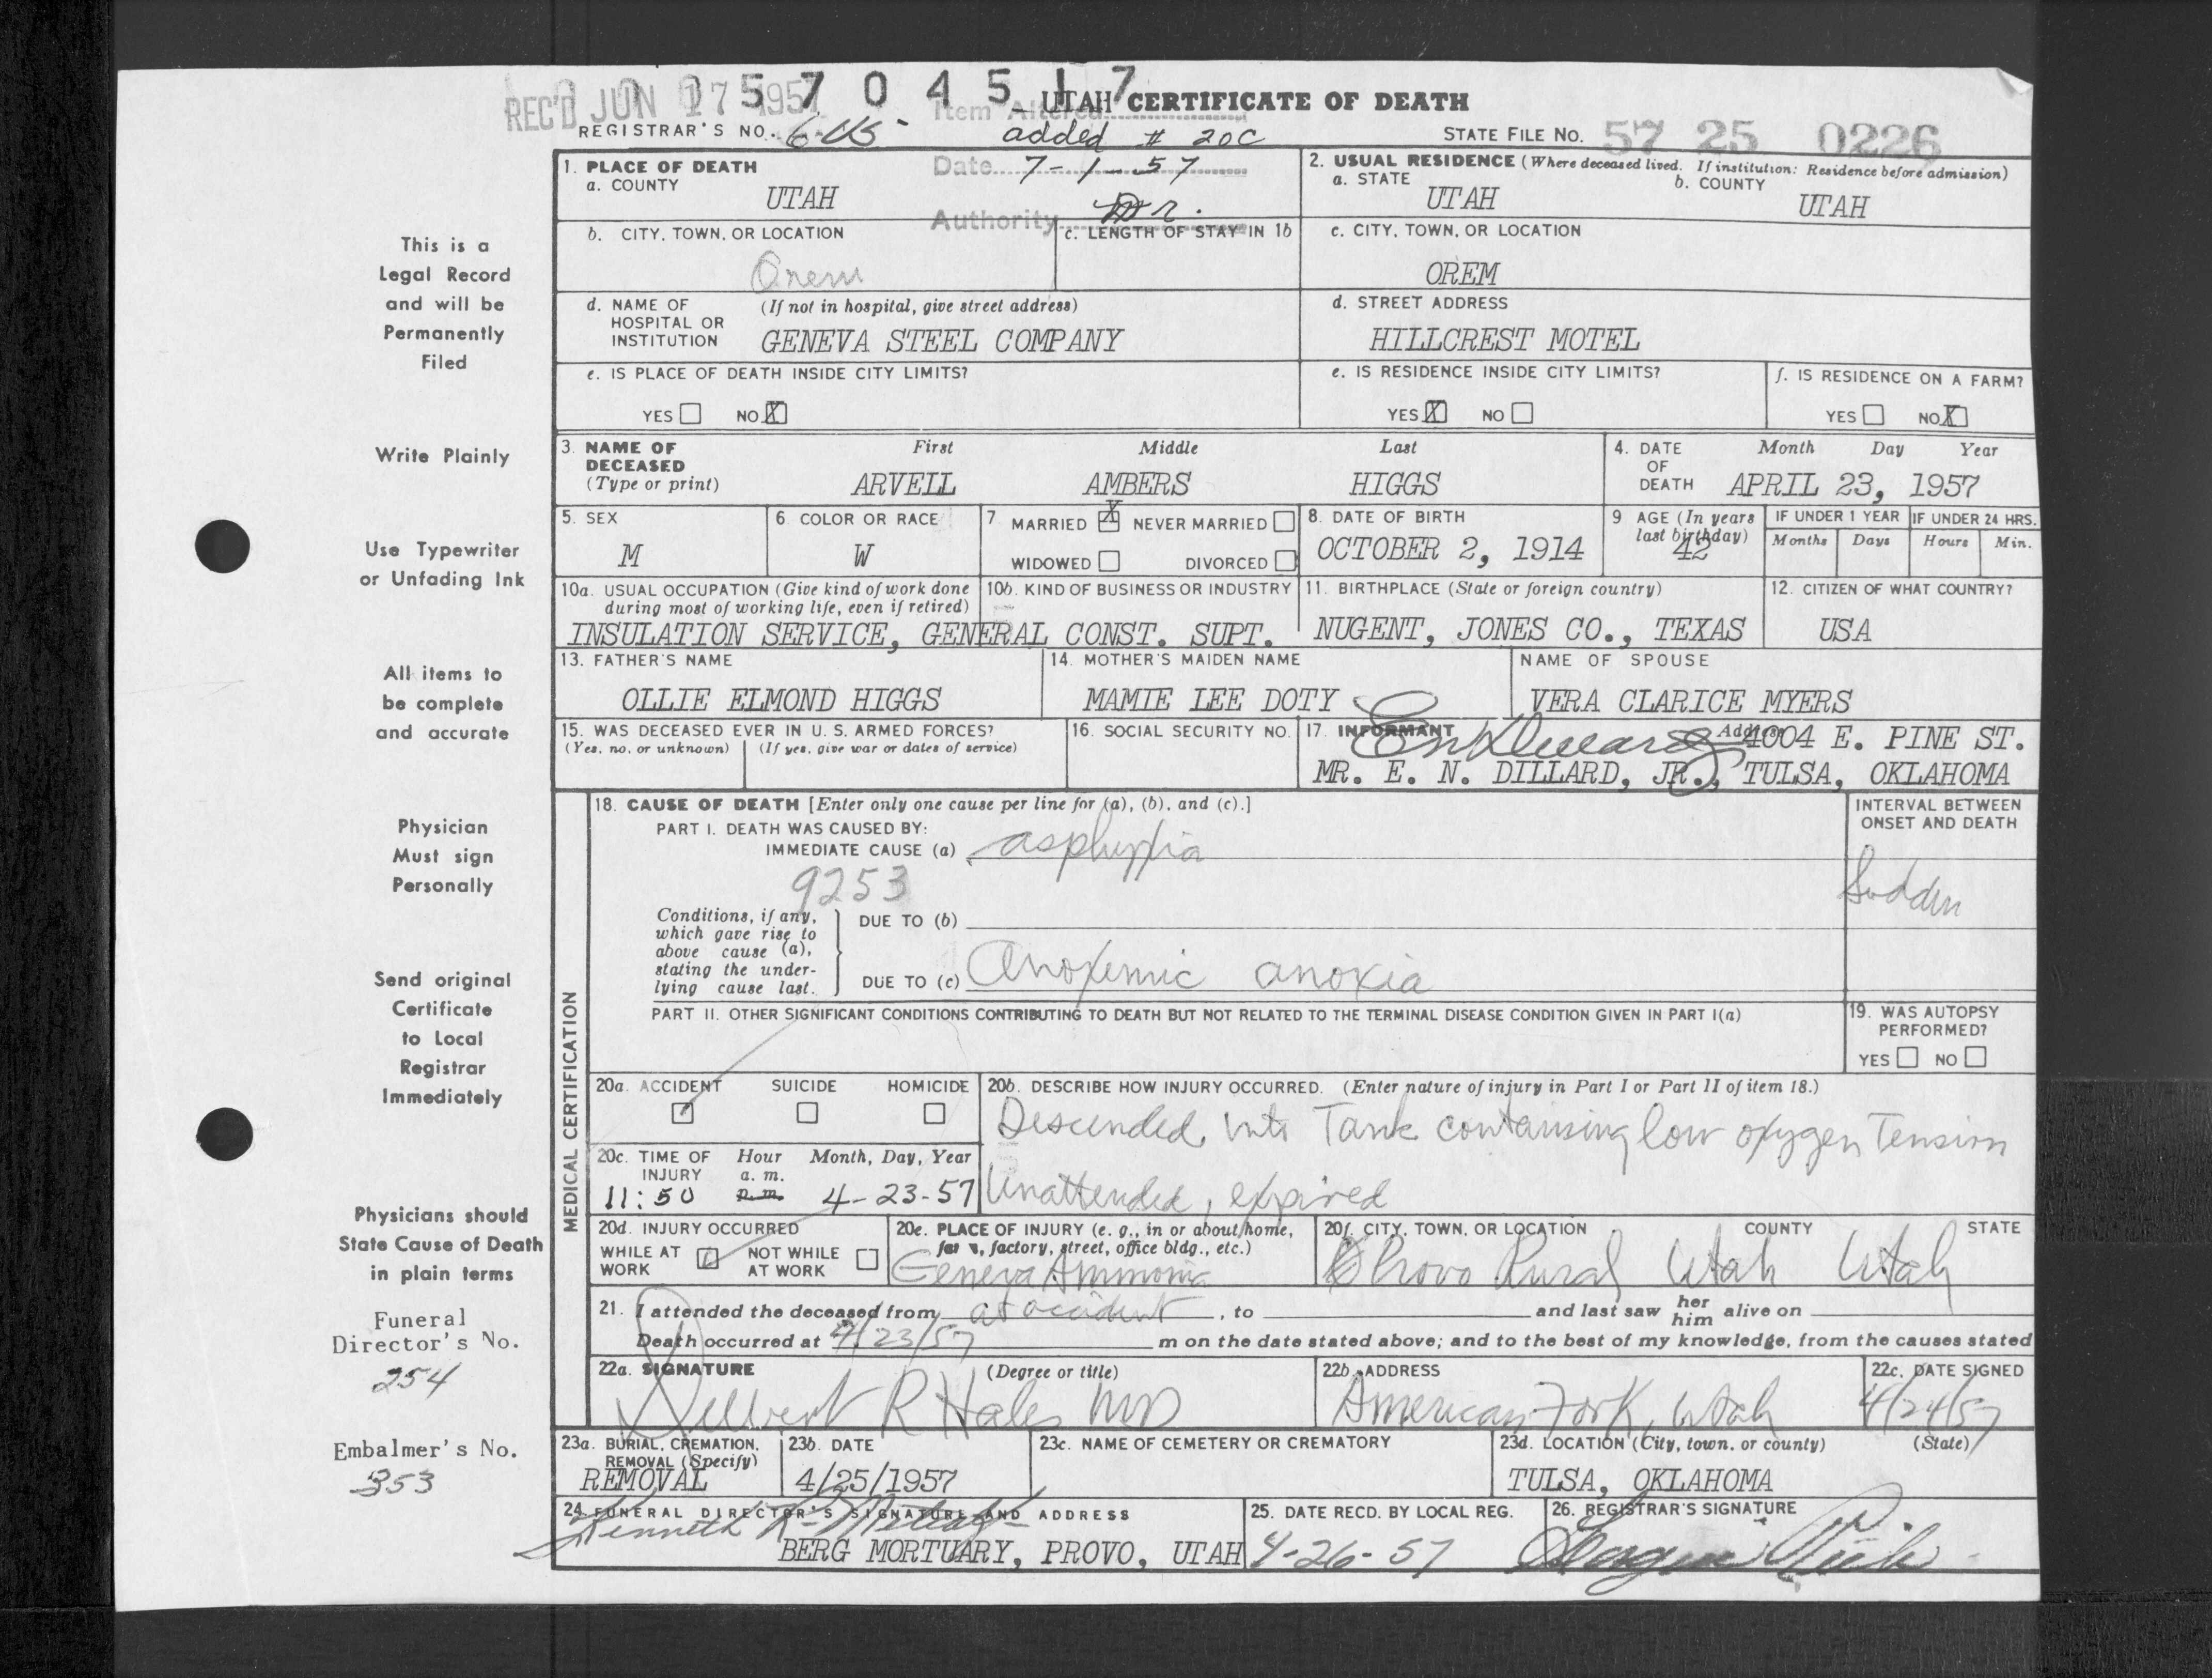 REC'D JUN 17 1957
5 7 0 4 5 1 7
Item Altered
UTAH CERTIFICATE OF DEATH
REGISTRAR'S NO.
added # 20C
STATE FILE NO. 57 25 0226
Date 7-1-57
Authority
1. PLACE OF DEATH
a. COUNTY
UTAH
2. USUAL RESIDENCE (Where deceased lived. If institution: Residence before admission)
a. STATE b. COUNTY
UTAH UTAH
b. CITY, TOWN, OR LOCATION
Orem
c. LENGTH OF STAY IN 1b
c. CITY, TOWN, OR LOCATION
OREM
d. NAME OF HOSPITAL OR INSTITUTION
(If not in hospital, give street address)
GENEVA STEEL COMPANY
d. STREET ADDRESS
HILLCREST MOTEL
e. IS PLACE OF DEATH INSIDE CITY LIMITS?
YES NO X
e. IS RESIDENCE INSIDE CITY LIMITS?
YES X NO
f. IS RESIDENCE ON A FARM?
YES NO X
3. NAME OF DECEASED (Type or print)
First Middle Last
ARVELL AMBERS HIGGS
4. DATE OF DEATH
Month Day Year
APRIL 23, 1957
5. SEX
M
6. COLOR OR RACE
W
7. MARRIED X NEVER MARRIED
WIDOWED DIVORCED
8. DATE OF BIRTH
OCTOBER 2, 1914
9 AGE (In years last birthday)
42
IF UNDER 1 YEAR
Months Days
IF UNDER 24 HRS.
Hours Min.
10a. USUAL OCCUPATION (Give kind of work done during most of working life, even if retired)
10b. KIND OF BUSINESS OR INDUSTRY
INSULATION SERVICE, GENERAL CONST. SUPT.
11. BIRTHPLACE (State or foreign country)
NUGENT, JONES CO., TEXAS
12. CITIZEN OF WHAT COUNTRY?
USA
13. FATHER'S NAME
OLLIE ELMOND HIGGS
14. MOTHER'S MAIDEN NAME
MAMIE LEE DOTY
NAME OF SPOUSE
VERA CLARICE MYERS
15. WAS DECEASED EVER IN U. S. ARMED FORCES?
(Yes, no, or unknown) (If yes, give war or dates of service)
16. SOCIAL SECURITY NO.
17. INFORMANT Address
4004 E. PINE ST.
MR. E. N. DILLARD, JR., TULSA, OKLAHOMA
MEDICAL CERTIFICATION
18. CAUSE OF DEATH [Enter only one cause per line for (a), (b), and (c).]
PART I. DEATH WAS CAUSED BY:
IMMEDIATE CAUSE (a) asphyxia
9253
Conditions, if any, which gave rise to above cause (a), stating the underlying cause last.
DUE TO (b)
DUE TO (c) Anoxemic anoxia
INTERVAL BETWEEN ONSET AND DEATH
Sudden
PART II. OTHER SIGNIFICANT CONDITIONS CONTRIBUTING TO DEATH BUT NOT RELATED TO THE TERMINAL DISEASE CONDITION GIVEN IN PART I(a)
19. WAS AUTOPSY PERFORMED?
YES NO
20a. ACCIDENT SUICIDE HOMICIDE
20b. DESCRIBE HOW INJURY OCCURRED. (Enter nature of injury in Part I or Part II of item 18.)
Descended into Tank containing low oxygen Tension
Unattended, expired
20c. TIME OF INJURY
Hour Month, Day, Year
a. m.
p. m.
11:50 4-23-57
20d. INJURY OCCURRED
WHILE AT WORK NOT WHILE AT WORK
20e. PLACE OF INJURY (e. g., in or about home, farm, factory, street, office bldg., etc.)
Geneva Ammonia
20f. CITY, TOWN, OR LOCATION COUNTY STATE
Provo Rural Utah Utah
21. I attended the deceased from at accident, to and last saw her him alive on
Death occurred at 4/23/57 m on the date stated above; and to the best of my knowledge, from the causes stated
22a. SIGNATURE (Degree or title)
Delbert R Hales MD
22b. ADDRESS
American Fork, Utah
22c. DATE SIGNED
4/24/57
23a. BURIAL, CREMATION, REMOVAL (Specify)
REMOVAL
23b. DATE
4/25/1957
23c. NAME OF CEMETERY OR CREMATORY
23d. LOCATION (City, town, or county) (State)
TULSA, OKLAHOMA
24. FUNERAL DIRECTOR'S SIGNATURE AND ADDRESS
BERG MORTUARY, PROVO, UTAH
25. DATE RECD. BY LOCAL REG.
4-26-57
26. REGISTRAR'S SIGNATURE
This is a
Legal Record
and will be
Permanently
Filed
Write Plainly
Use Typewriter
or Unfading Ink
All items to
be complete
and accurate
Physician
Must sign
Personally
Send original
Certificate
to Local
Registrar
Immediately
Physicians should
State Cause of Death
in plain terms
Funeral
Director's No.
254
Embalmer's No.
353